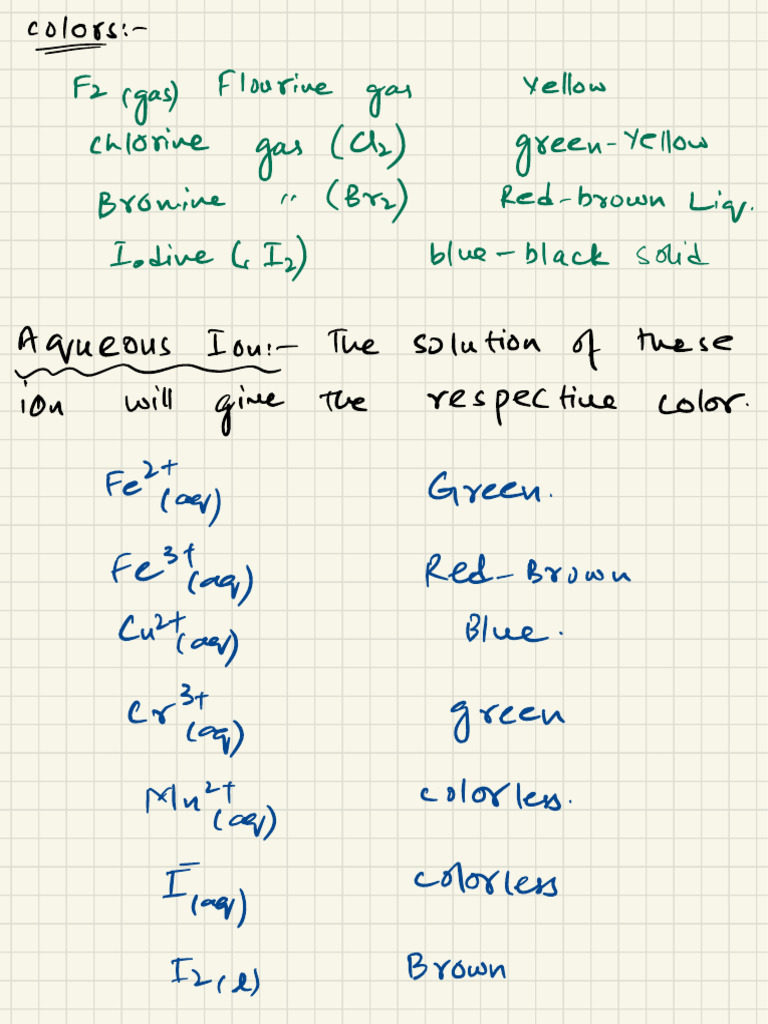 colors:-
F2 (gas) Flourine gas Yellow
chlorine gas (Cl2) green-Yellow
Bromine " (Br2) Red-brown Liq.
Iodine (, I2) blue-black solid
Aqueous Ion:- The solution of these
ion will give the respective color.
Fe²⁺(aq) Green.
Fe³⁺(aq) Red-Brown
Cu²⁺(aq) Blue.
Cr³⁺(aq) green
Mn²⁺(aq) colorless.
I⁻(aq) colorless
I2(l) Brown